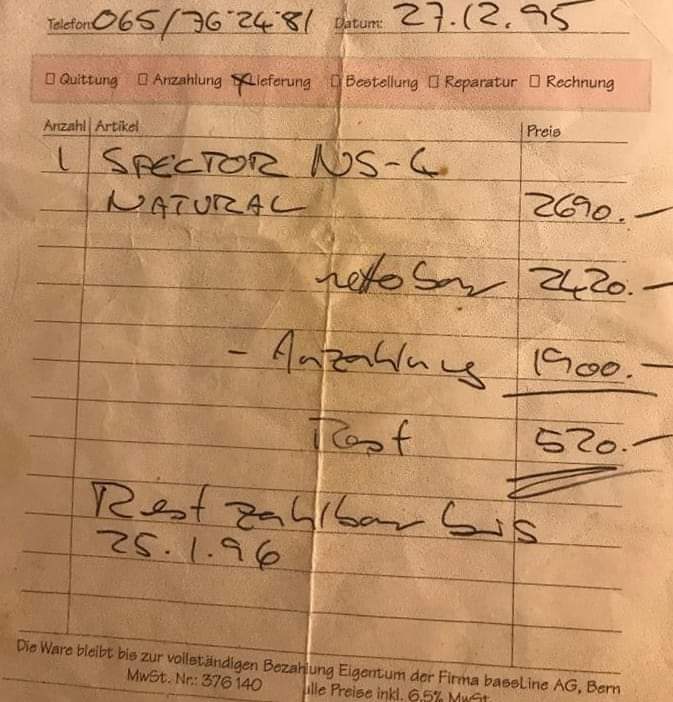 Telefon: 065/76'24'81 Datum: 27.12.95
Quittung Anzahlung Lieferung Bestellung Reparatur Rechnung
Anzahl Artikel Preis
1 SPECTOR NS-4
NATURAL 2690.—
netto bar 2420.—
- Anzahlung 1900.—
Rest 520.—
Rest zahlbar bis
25.1.96
Die Ware bleibt bis zur vollständigen Bezahlung Eigentum der Firma bassLine AG, Bern
MwSt. Nr.: 376 140 alle Preise inkl. 6.5% MwSt.